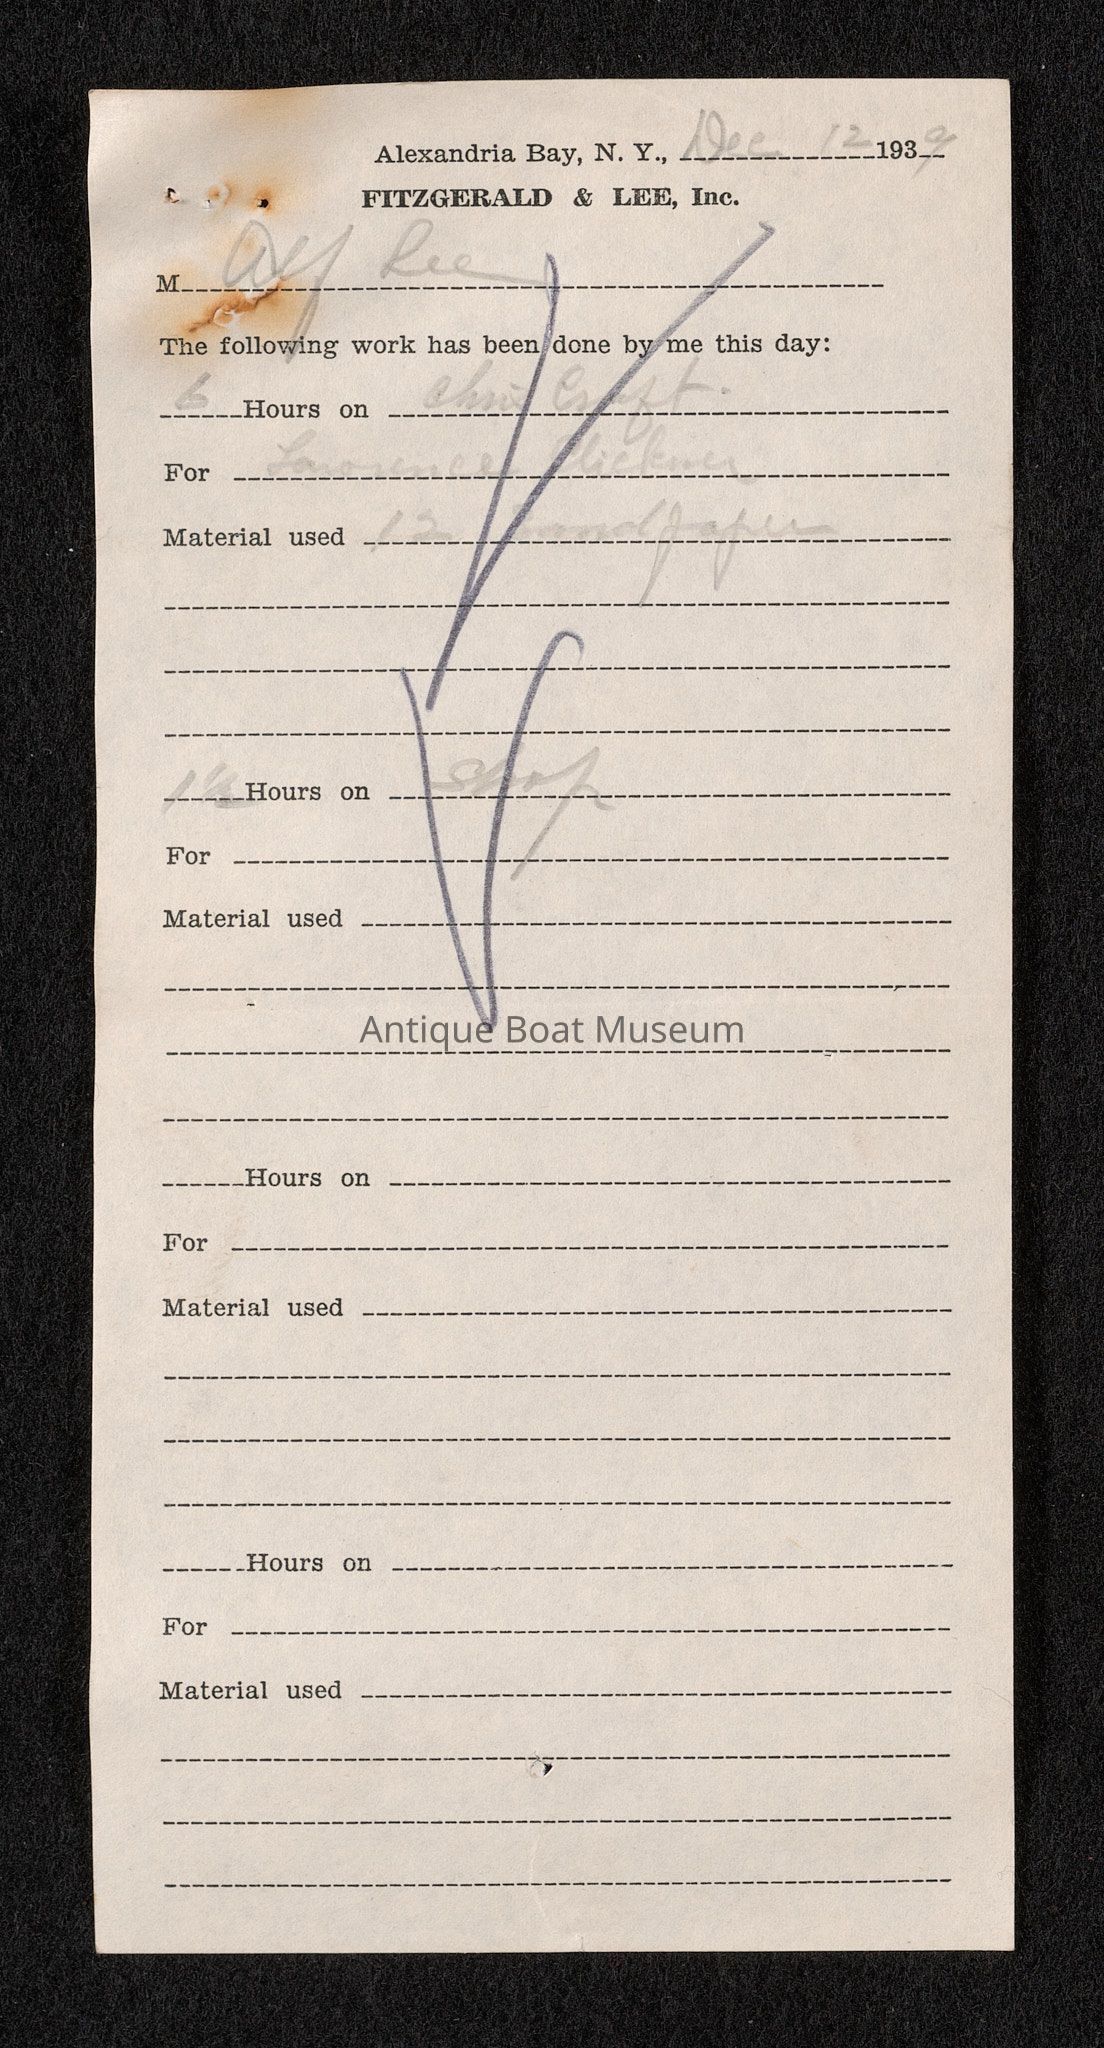 Alexandria Bay, N. Y., Dec 12 1939
FITZGERALD & LEE, Inc.
M Alf Lee
The following work has been done by me this day:
6 Hours on Chris Craft.
For Lawrence
Material used 12 Sandpaper
1 1/2 Hours on Shop
For
Material used
Antique Boat Museum
Hours on
For
Material used
Hours on
For
Material used